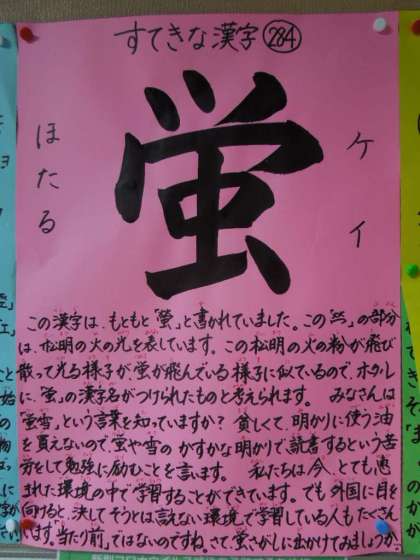 すてきな漢字 284
蛍
ケイ
ほたる
この漢字は、もともと「螢」と書かれていました。この「火火」の部分
は、松明の火の光を表しています。この松明の火の粉が飛び
散って光る様子が蛍が飛んでいる様子に似ているので、ホタル
に、「蛍」の漢字名がつけられたものと考えられます。 みなさんは
「蛍雪」という言葉を知っていますか? 貧しくて、明かりに使う油
を買えないので、蛍や雪のかすかな明かりで、読書するという苦
労をして勉強に励むことを言います。 私たちは今、とても恵
まれた環境の中で学習することができています。でも外国に目を
向けると、決してそうとは言えない環境で学習している人もたくさん
います。「当たり前」ではないのですね。さて蛍さがしに出かけてみましょうか